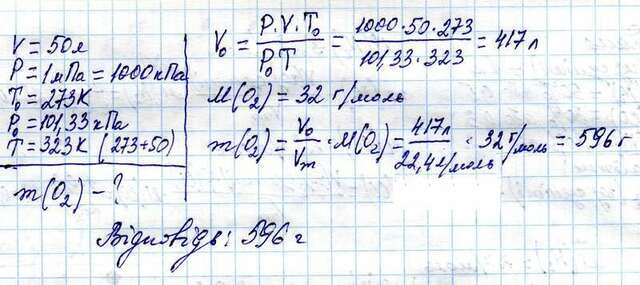 V = 50л
P = 1мПа = 1000кПа
T₀ = 273К
P₀ = 101,33 кПа
T = 323К (273+50)
m(O₂) – ?
V₀ = P·V·T₀ / P₀T = 1000·50·273 / 101,33·323 = 417л
M(O₂) = 32 г/моль
m(O₂) = V₀/Vm · M(O₂) = 417л / 22,4л/моль · 32 г/моль = 596 г
Відповідь: 596 г